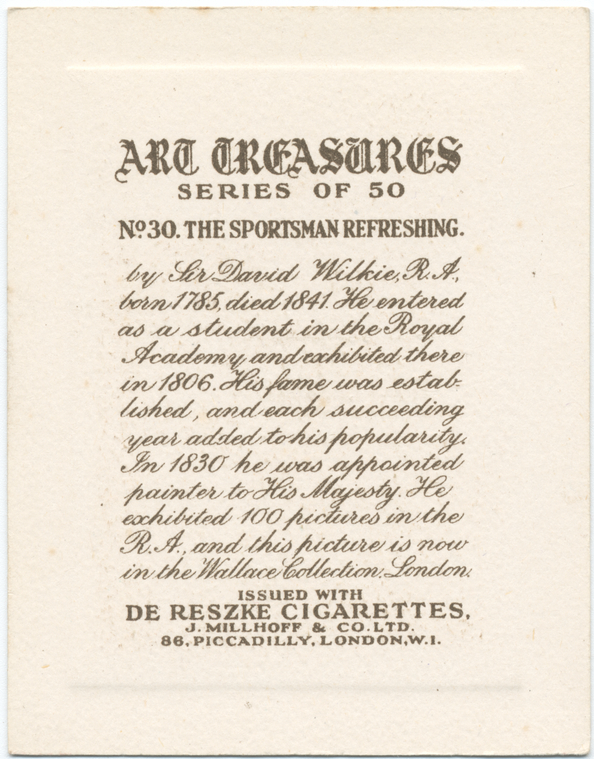 ART TREASURES
SERIES OF 50
Nº 30. THE SPORTSMAN REFRESHING.
by Sir David Wilkie, R.A.,
born 1785, died 1841. He entered
as a student in the Royal
Academy and exhibited there
in 1806. His fame was estab-
lished, and each succeeding
year added to his popularity.
In 1830 he was appointed
painter to His Majesty. He
exhibited 100 pictures in the
R.A., and this picture is now
in the Wallace Collection. London.
ISSUED WITH
DE RESZKE CIGARETTES,
J. MILLHOFF & CO. LTD.
86, PICCADILLY, LONDON, W.1.